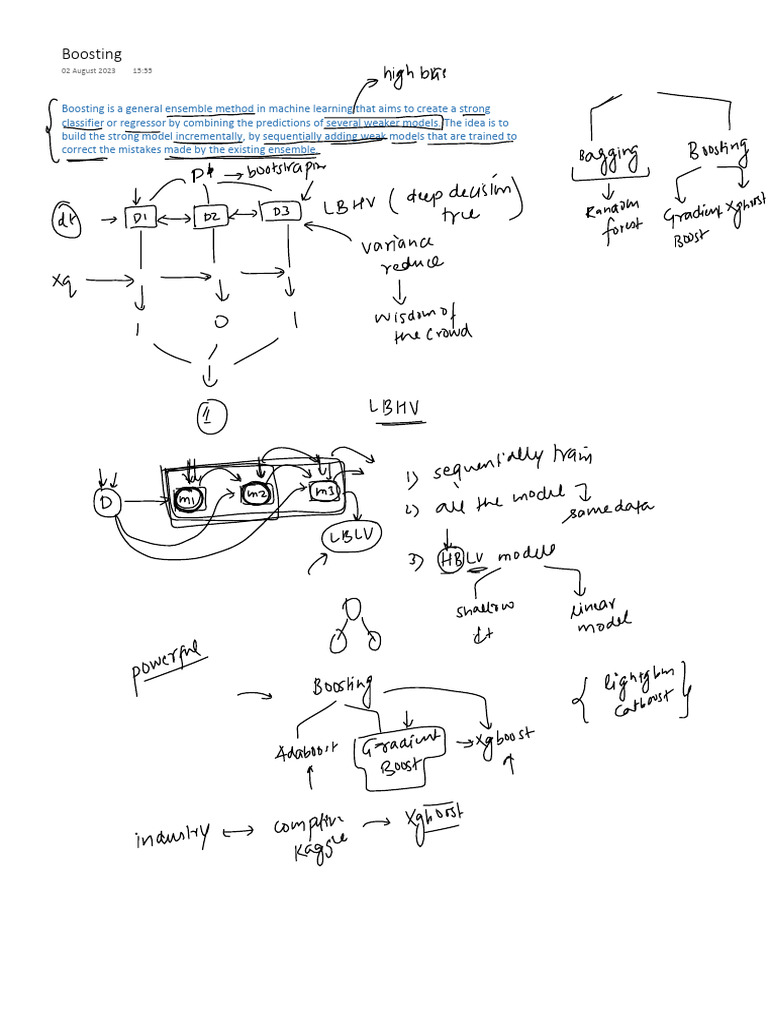 Boosting
02 August 2023 15:55
high bias
Boosting is a general ensemble method in machine learning that aims to create a strong
classifier or regressor by combining the predictions of several weaker models. The idea is to
build the strong model incrementally, by sequentially adding weak models that are trained to
correct the mistakes made by the existing ensemble.
Bagging
Boosting
Random
forest
Gradient
Boost
Xgboost
bootstrapping
dt
D1
D2
D3
LBHV (deep decision
tree)
variance
reduce
wisdom of
the crowd
Xq
1
0
1
1
LBHV
D
m1
m2
m3
LBLV
1) sequentially train
2) all the model
same data
3) HBLV models
shallow
dt
linear
model
powerful
Boosting
Adaboost
Gradient
Boost
Xgboost
{ lightgbm
Catboost }
industry
Kaggle
Xgboost